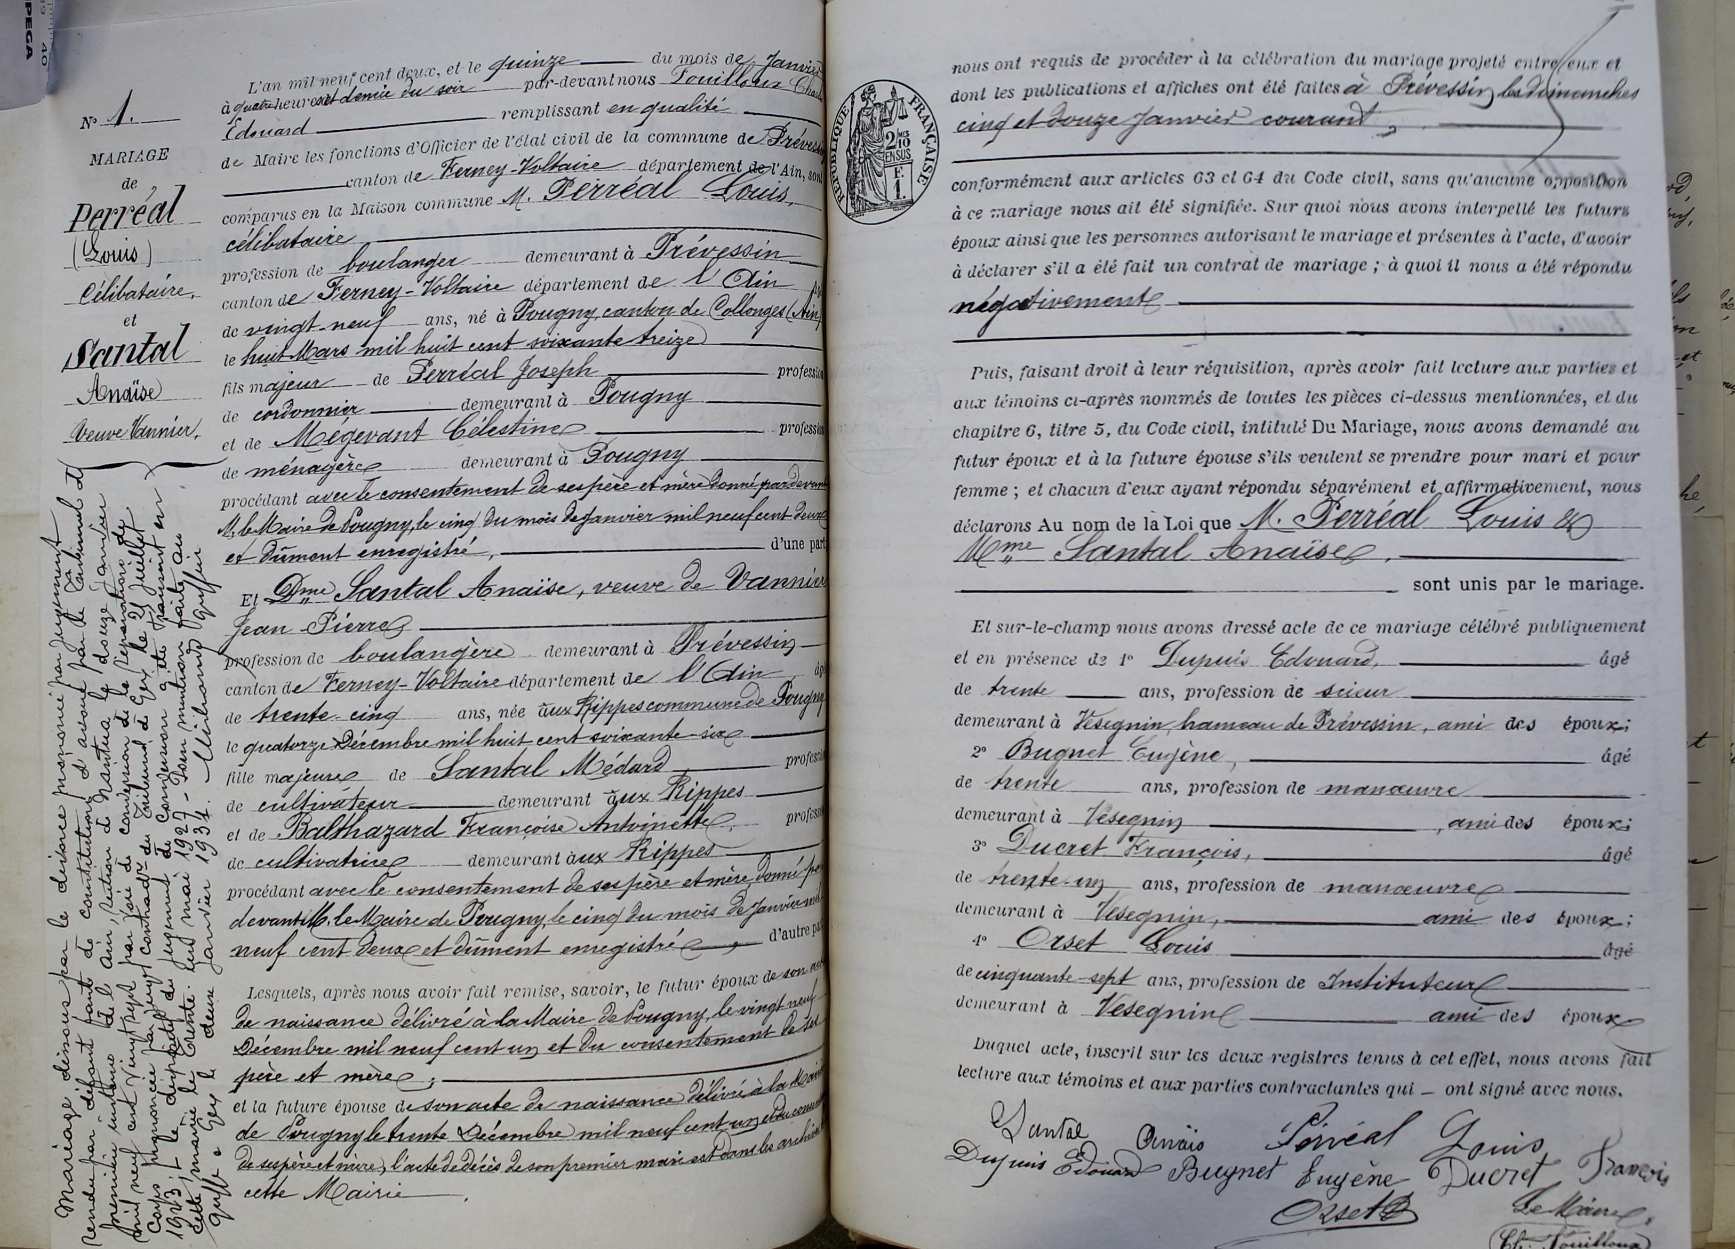 N° 1.
MARIAGE
de
Perréal
(Louis)
Célibataire,
et
Santal
Anaïse
Veuve Vannier.
Mariage dissous par le divorce prononcé par jugement
rendu par défaut faute de constitution d'avoué par le tribunal de
première instance de l'Ain, section de Nantua le douze janvier
mil neuf cent vingt sept par voie de conversion de la séparation de
corps prononcée par jugt contradre du Tribunal de Gex le 21 Juillet
1923, et le dispositif du jugement de conversion a été transcrit en
cette mairie le trente un mai 1927 - Pour mention faite au
Greffe à Gex le deux janvier 1931.
L'an mil neuf cent deux, et le quinze du mois de Janvier
à quatre heures et demie du soir par-devant nous Fouilloux Charles
Edouard remplissant en qualité
de Maire les fonctions d'Officier de l'état civil de la commune de Prévessin
canton de Ferney-Voltaire département de l'Ain, sont
comparus en la Maison commune M. Perréal Louis,
célibataire
profession de boulanger demeurant à Prévessin
canton de Ferney-Voltaire département de l'Ain
de vingt-neuf ans, né à Pougny, canton de Collonges (Ain)
le huit Mars mil huit cent soixante treize
fils majeur de Perréal Joseph profession
de cordonnier demeurant à Pougny
et de Mégevant Célestine profession
de ménagère demeurant à Pougny
procédant avec le consentement de ses père et mère donné par devant
M. le Maire de Pougny, le cinq du mois de janvier mil neuf cent deux
et dûment enregistré, d'une part
Et Dme Santal Anaïse, veuve de Vannier
Jean-Pierre
profession de boulangère demeurant à Prévessin
canton de Ferney-Voltaire département de l'Ain
de trente-cinq ans, née aux Rippes commune de Pougny
le quatorze Décembre mil huit cent soixante-six
fille majeure de Santal Médard profession
de cultivateur demeurant aux Rippes
et de Balthazard Françoise Antoinette, profession
de cultivatrice demeurant aux Rippes
procédant avec le consentement de ses père et mère donné par
devant M. le Maire de Pougny, le cinq du mois de Janvier mil
neuf cent deux et dûment enregistré, d'autre part
Lesquels, après nous avoir fait remise, savoir, le futur époux de son acte
de naissance délivré à la Mairie de Pougny, le vingt neuf
Décembre mil neuf cent un et du consentement de ses
père et mère;
et la future épouse de son acte de naissance délivré à la Mairie
de Pougny le trente Décembre mil neuf cent un et du consent
de ses père et mère, l'acte de décès de son premier mari est dans les archives de
cette Mairie.
RÉPUBLIQUE FRANÇAISE
2/10
EN SUS
F.
1.
nous ont requis de procéder à la célébration du mariage projeté entre eux et
dont les publications et affiches ont été faites à Prévessin les dimanches
cinq et douze Janvier courant,
conformément aux articles 63 et 64 du Code civil, sans qu'aucune opposition
à ce mariage nous ait été signifiée. Sur quoi nous avons interpellé les futurs
époux ainsi que les personnes autorisant le mariage et présentes à l'acte, d'avoir
à déclarer s'il a été fait un contrat de mariage ; à quoi il nous a été répondu
négativement
Puis, faisant droit à leur réquisition, après avoir fait lecture aux parties et
aux témoins ci-après nommés de toutes les pièces ci-dessus mentionnées, et du
chapitre 6, titre 5, du Code civil, intitulé Du Mariage, nous avons demandé au
futur époux et à la future épouse s'ils veulent se prendre pour mari et pour
femme ; et chacun d'eux ayant répondu séparément et affirmativement, nous
déclarons Au nom de la Loi que M. Perréal Louis &
Mme Santal Anaïse,
sont unis par le mariage.
Et sur-le-champ nous avons dressé acte de ce mariage célébré publiquement
et en présence de 1° Dupuis Edouard, âgé
de trente ans, profession de scieur
demeurant à Vésegnin, hameau de Prévessin, ami des époux;
2° Bugnet Eugène, âgé
de trente ans, profession de manœuvre
demeurant à Vésegnin, ami des époux;
3° Ducret François, âgé
de trente-un ans, profession de manœuvre
demeurant à Vésegnin, ami des époux;
4° Orset Louis âgé
de cinquante-sept ans, profession de Instituteur
demeurant à Vésegnin ami des époux
Duquel acte, inscrit sur les deux registres tenus à cet effet, nous avons fait
lecture aux témoins et aux parties contractantes qui – ont signé avec nous.
Santal Anaïs Perréal Louis
Dupuis Edouard Bugnet Eugène Ducret François
Orset Le Maire,
Ch. Fouilloux